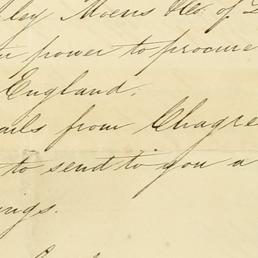 ley Moens &Co. of
power to procure
England.
ails from Chagre
to send to you a
ngs.